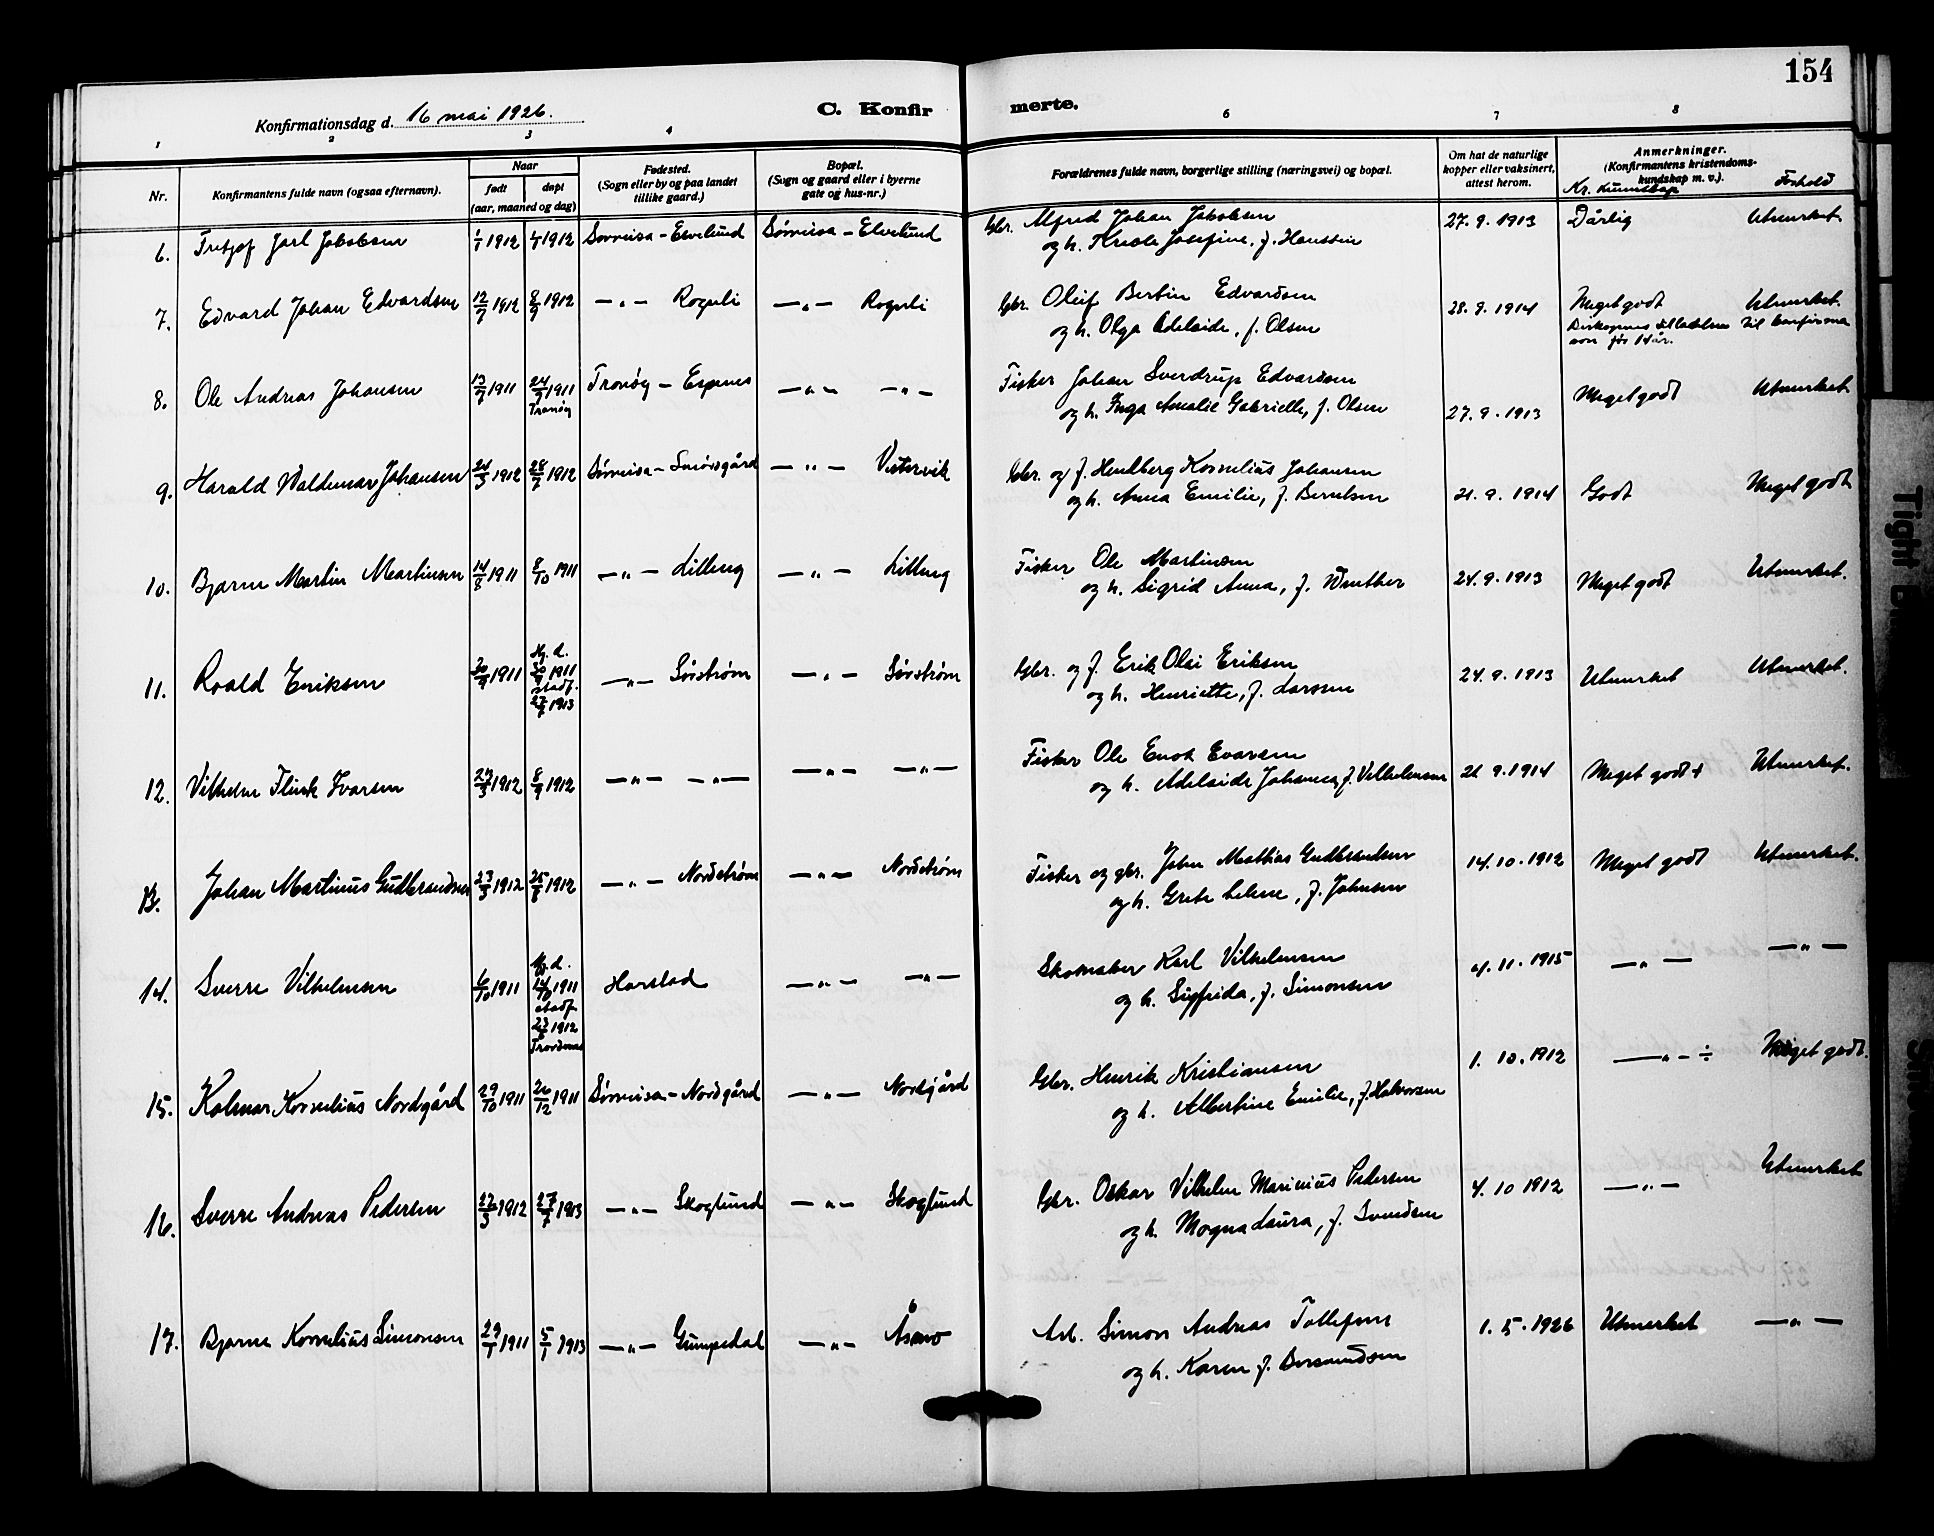 154
Konfirmationsdag d. 16 mai 1926.
C. Konfir merte.
1 2 3 4 6 7 8
Nr.
Konfirmantens fulde navn (ogsaa efternavn).
Naar
født døpt
(aar, maaned og dag)
Fødested.
(Sogn eller by og paa landet
tillike gaard.)
Bopæl.
(Sogn og gaard eller i byerne
gate og hus-nr.)
Forældrenes fulde navn, borgerlige stilling (næringsvei) og bopæl.
Om hat de naturlige
kopper eller vaksinert,
attest herom.
Anmerkninger.
(Konfirmantens kristendoms-
kundskap m. v.).
Kr. kunnskap Forhold
6. Jarl Jakobsen 1/1 1912 1912 Sørreisa - Elvelund Sørreisa - Elvelund Gbr. Alfred Johan Jakobsen 27.9.1913 Dårlig Utmerket
og h. Josefine, f. Hanssen
7. Edvard Johan Edvardsen 12/7 1912 8/9 1912 -"- Rognli -"- Rognli Gbr. Oluf Bertin Edvardsen 28.9.1914 Meget godt Utmerket.
og h. Olga Adelaide, f. Olsen Biskopens tilladelse til konfirma
son før 14 år.
8. Ole Andreas Johansen 13/7 1911 24/9 1911 Tranøy - Espenes -"- -"- Fisker Johan Sverdrup Edvardsen Meget godt Utmerket
Tranøy og h. Inga Amalie Gabrielle, f. Olsen 27.9.1913
9. Harald Valdemar Johansen 24/3 1912 28/7 1912 Sørreisa - -"- Vestervik Gbr. og f. Hendberg Kornelius Johansen Meget godt
og h. Anna Emilie, f. Berntsen 21.9.1914 Godt
10. Bjarne Martin Martinsen 14/8 1911 8/10 1911 -"- Lilleng -"- Lilleng Fisker Ole Martinsen Utmerket.
og h. Sigrid Anna, f. 24.9.1913 Meget godt
11. Roald Eriksen 20/9 1911 Hj. d. 30/9 1911 stadf. 27/7 1913 -"- Sørstrøm -"- Sørstrøm Gbr. og f. Erik Olai Eriksen 24.9.1913 Utmerket Utmerket.
og h. Henriette, f. Larssen
12. Vilhelm Flink Ivarsen 27/3 1912 8/9 1912 -"- -"- -"- -"- Fisker Ole Enok Evarsen Utmerket.
og h. Adelaide Johanna, f. Vilhelmsen 21.9.1914 Meget godt
13. Johan Martinus Gudbrandsen 23/3 1912 25/8 1912 -"- Nordstrøm -"- Nordstrøm Fisker og gbr. John Mathias Gudbrandsen 14.10.1912 Meget godt Utmerket.
og h. Grete Helene, f. Johnsen
14. Sverre Vilhelmsen 6/10 1911 Hj. d. 14/10 1911 stadf. 23/6 1912 Trondenes Harstad -"- -"- Skomaker Karl Vilhelmsen 4.11.1915 -"- -"-
og h. Sigfrida, f. Simonsen
15. Kolmar Kornelius Nordgård 29/10 1911 26/12 1911 Sørreisa - Nordgård -"- Nordgård Gbr. Henrik Kristiansen 1.10.1912 -"- ÷ Meget godt.
og h. Albertine Emilie, f. Halvorsen
16. Sverre Andreas Pedersen 22/3 1912 27/7 1913 -"- Skoglund -"- Skoglund Gbr. Oskar Vilhelm Marinius Pedersen 4.10 1912 -"- Utmerket
og h. Magna Laura, f. Svendsen
17. Bjarne Kornelius Simonsen 29/1 1911 5/1 1913 -"- Gumpedal -"- Arb. Simon Andreas Tollefsen 1.5.1926 Utmerket -"-
og h. Karen f.
Tight